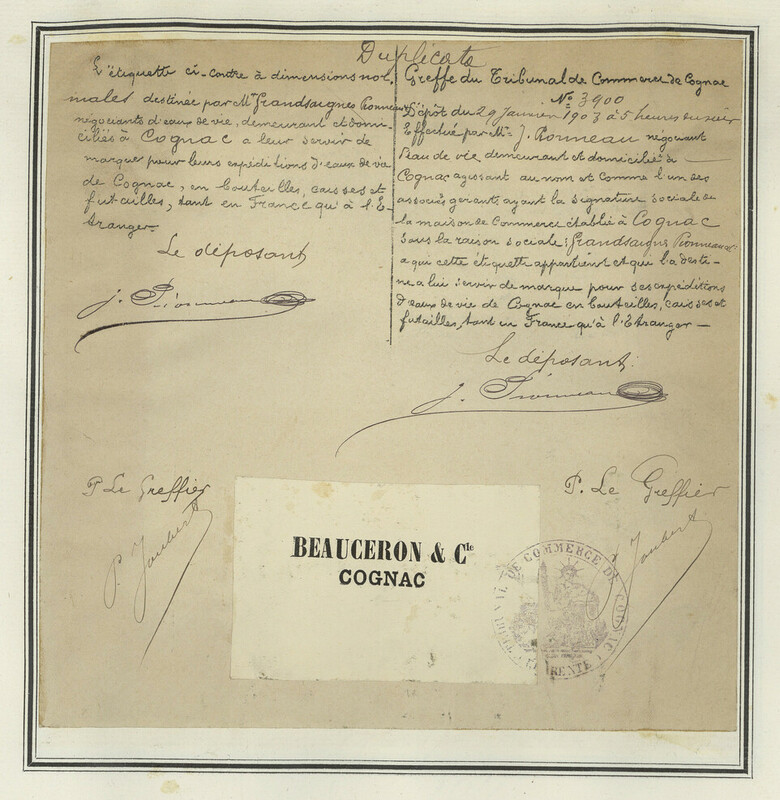 Duplicata
L'étiquette ci-contre à dimensions nor-
males destinée par Mrs Grandsaignes Pionneau
négociants d'eaux de vie, demeurant et domi-
ciliés à Cognac a leur servir de
marque pour leurs expéditions d'eaux de vie
de Cognac, en bouteilles, caisses et
futailles, tant en France qu'à l'E-
tranger.
Le déposant
J. Pionneau
Greffe du Tribunal de Commerce de Cognac
No 3900
Dépôt du 29 Janvier 1903 à 5 heures du soir
Effectué par Mr J. Pionneau négociant
Eau de vie, demeurant et domicilié à
Cognac agissant au nom et comme l'un des
associés gérants ayant la signature sociale de
la maison de Commerce établie à Cognac
sous la raison sociale: Grandsaigns Pionneau
a qui cette étiquette appartient et qui l'a desti-
née a lui servir de marque pour ses expéditions
d'eaux de vie de Cognac en bouteilles, caisses et
futailles, tant en France qu'à l'Etranger
Le déposant
J. Pionneau
P Le Greffier
P. Joubert
P. Le Greffier
Joubert
BEAUCERON & Cie
COGNAC
TRIBUNAL DE COMMERCE DE COGNAC
CHARENTE